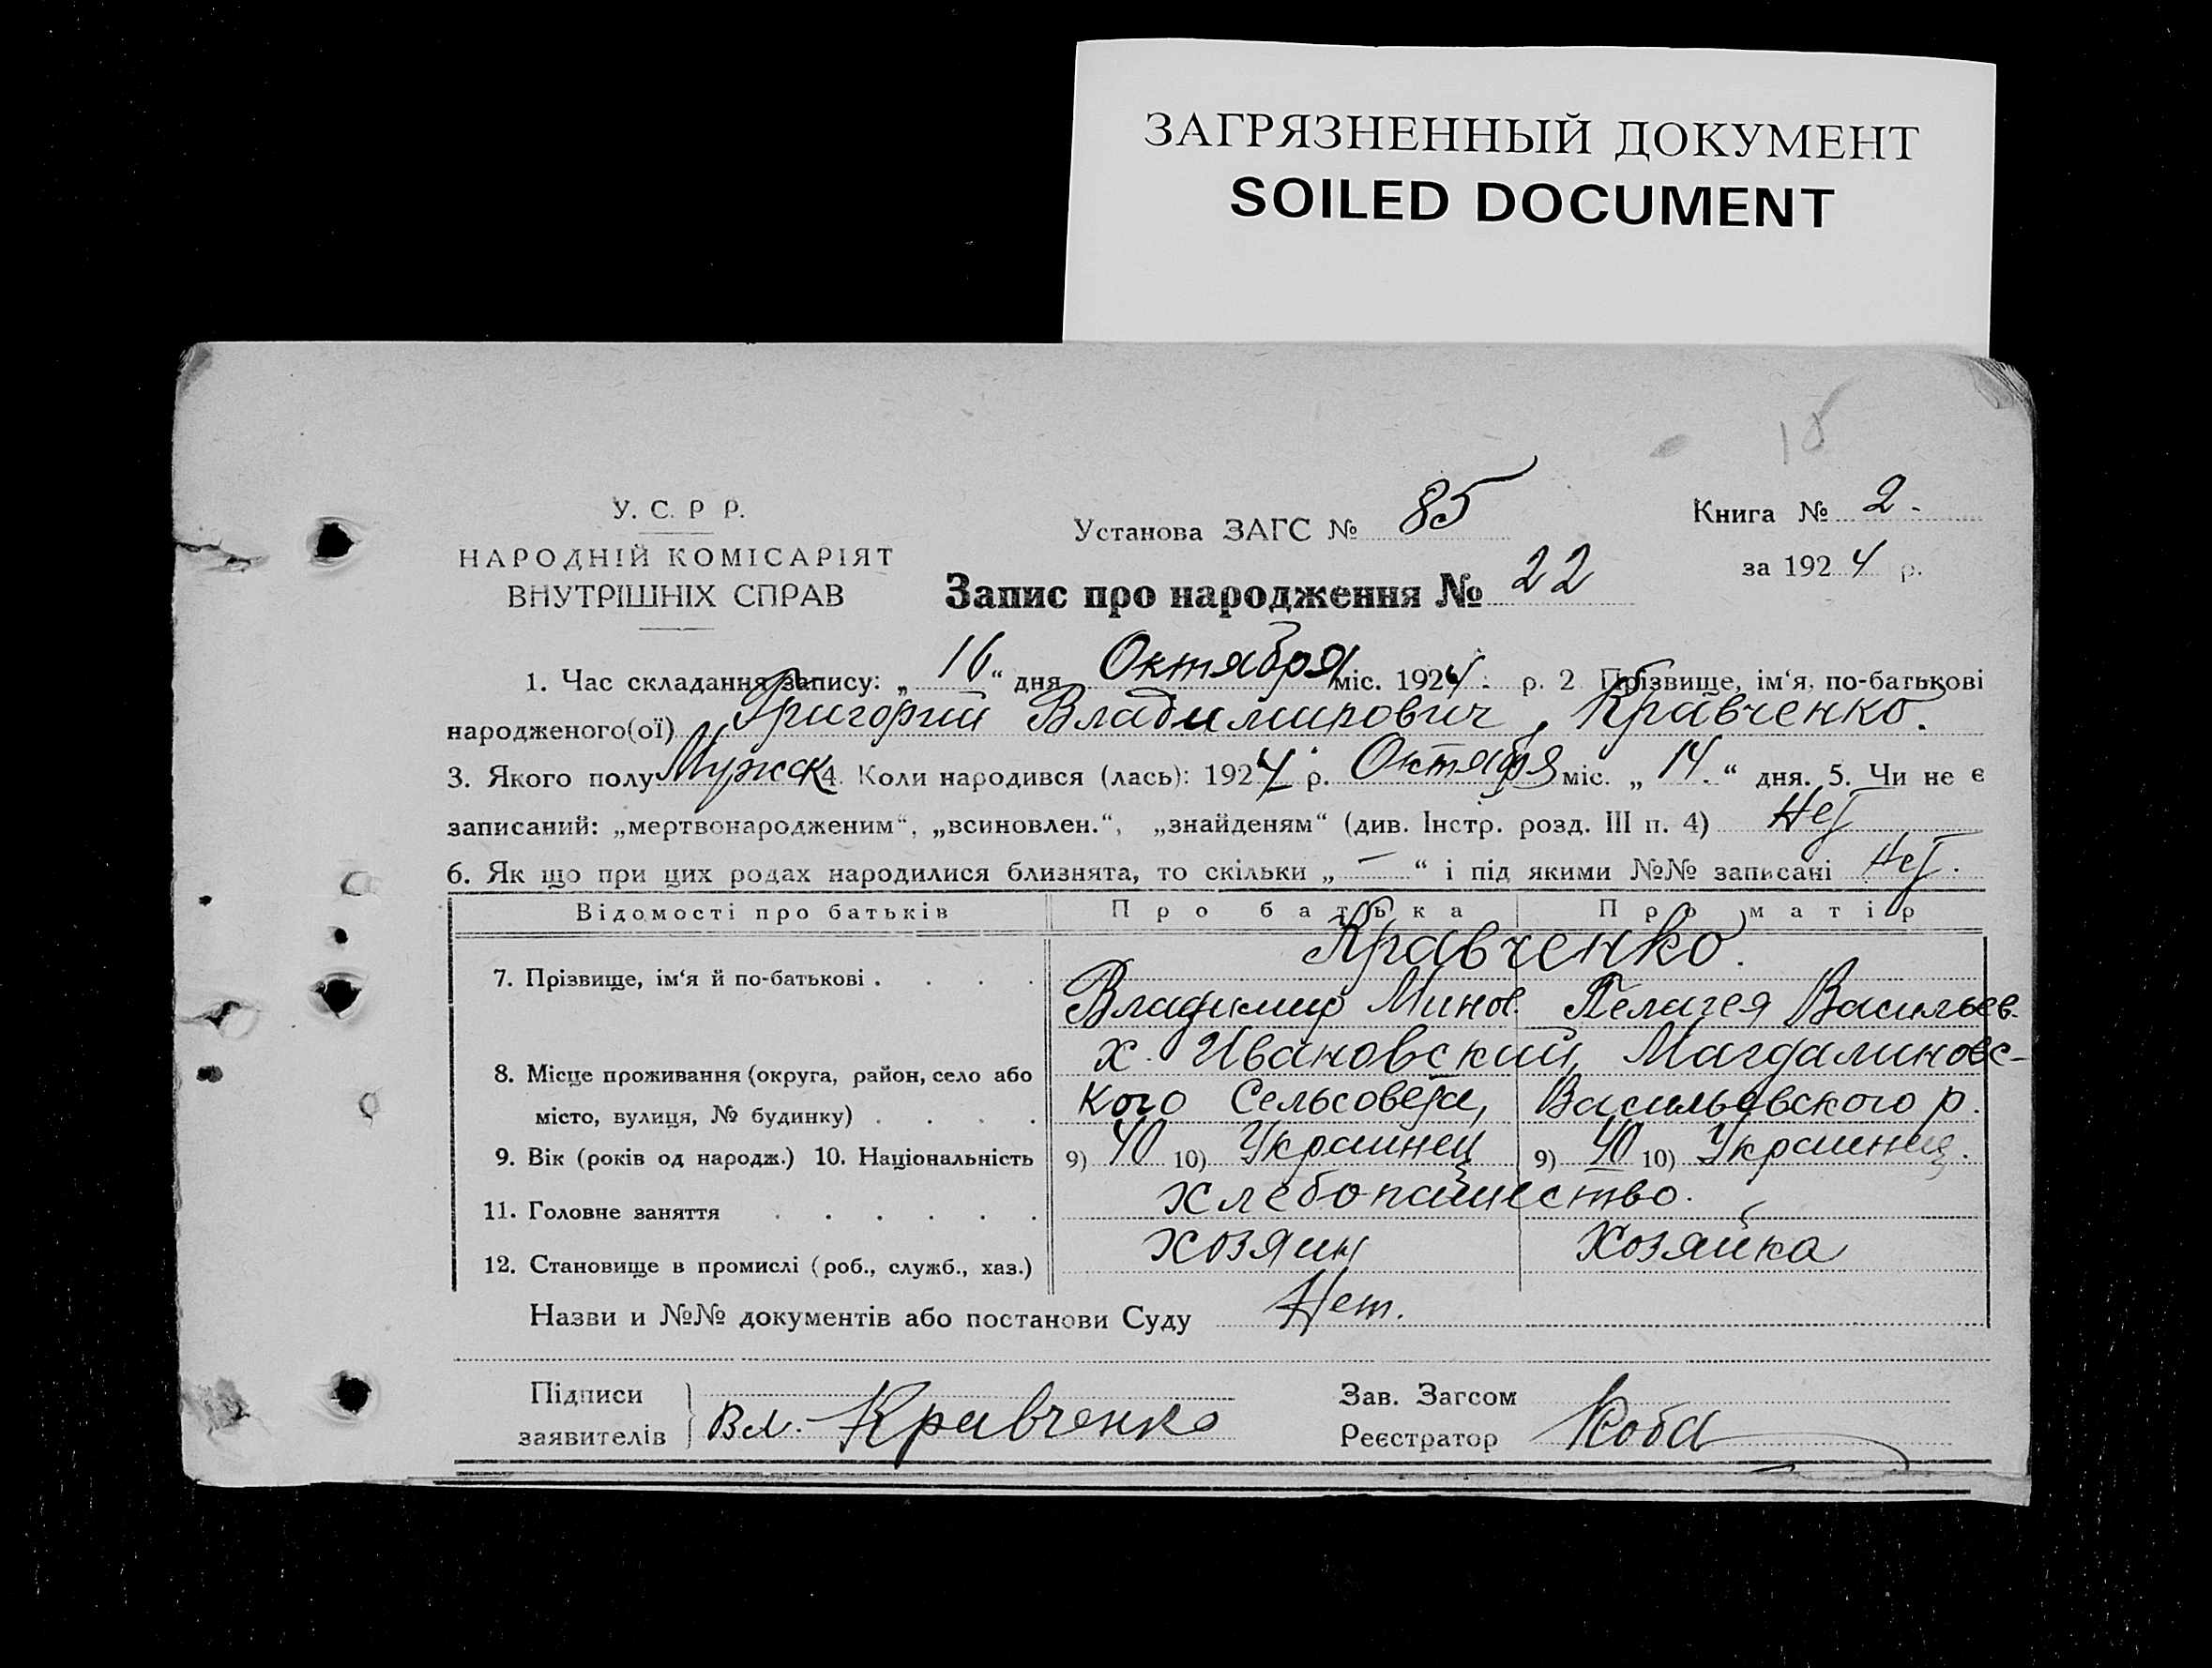 ЗАГРЯЗНЕННЫЙ ДОКУМЕНТ
SOILED DOCUMENT
18
У. С. Р Р.
НАРОДНІЙ КОМІСАРІЯТ
ВНУТРІШНІХ СПРАВ
Установа ЗАГС № 85
Запис про народження № 22
Книга № 2.
за 1924 р.
1. Час складання запису: „16“ дня Октября міс. 1924 р. 2 Прізвище, ім‘я, по-батькові
народженого(ої) Григорий Владимирович, Кравченко.
3. Якого полу Мужск 4. Коли народився (лась): 1924 р. Октября міс. „14.“ дня. 5. Чи не є
записаний: „мертвонародженим“, „всиновлен.“, „знайденям“ (див. Інстр. розд. III п. 4) Нет
6. Як що при цих родах народилися близнята, то скільки „—“ і під якими №№ записані Нет.
Відомості про батьків Про батька Про матір
Кравченко.
7. Прізвище, ім‘я й по-батькові . . . .
Владимир Минов. Пелагея Васильев.
х. Ивановский, Магдалиновс-
8. Місце проживання (округа, район, село або
місто, вулиця, № будинку) . . . . кого Сельсовета, Васильевского р.
9. Вік (років од народж.) 10. Національність 9) 40 10) Украинец 9) 40 10) Украинец.
11. Головне заняття . . . . . . хлебопашество.
12. Становище в промислі (роб., служб., хаз.) хозяин Хозяйка
Назви и №№ документів або постанови Суду Нет.
Підписи
заявителів Вл. Кравченко
Зав. Загсом
Реєстратор Коба